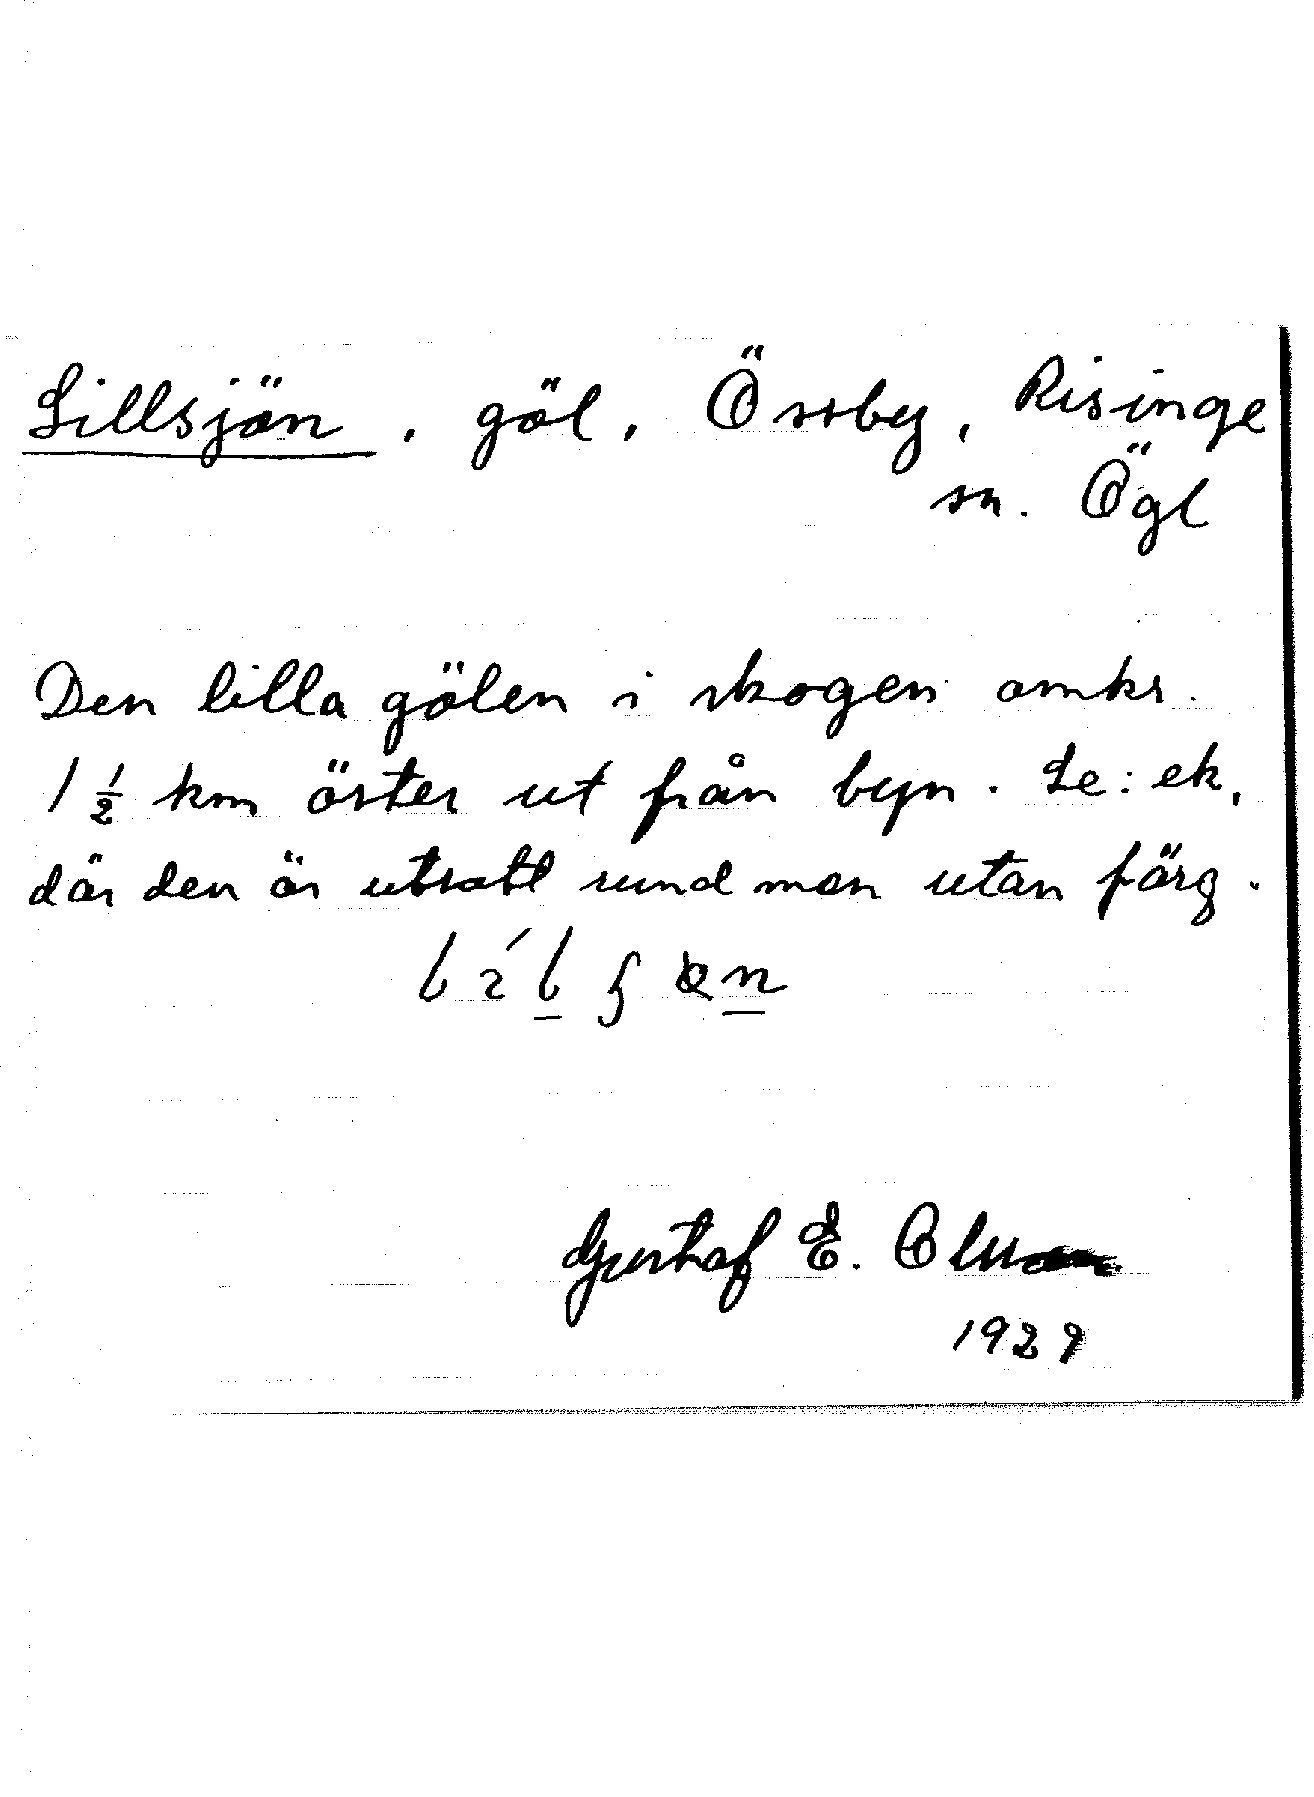 Lillsjön, göl, Össby, Risinge
sn. Ögl
Den lilla gölen i skogen omkr.
1 ½ km öster ut från byn. Se: ek,
där den är utsatt rund men utan färg.
Gustaf E.
1929